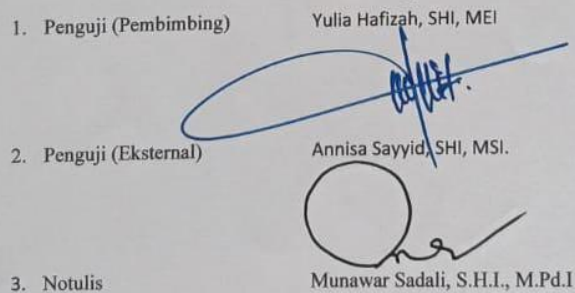 1. Penguji (Pembimbing) Yulia Hafizah, SHI, MEI
2. Penguji (Eksternal) Annisa Sayyid, SHI, MSI.
3. Notulis Munawar Sadali, S.H.I., M.Pd.I